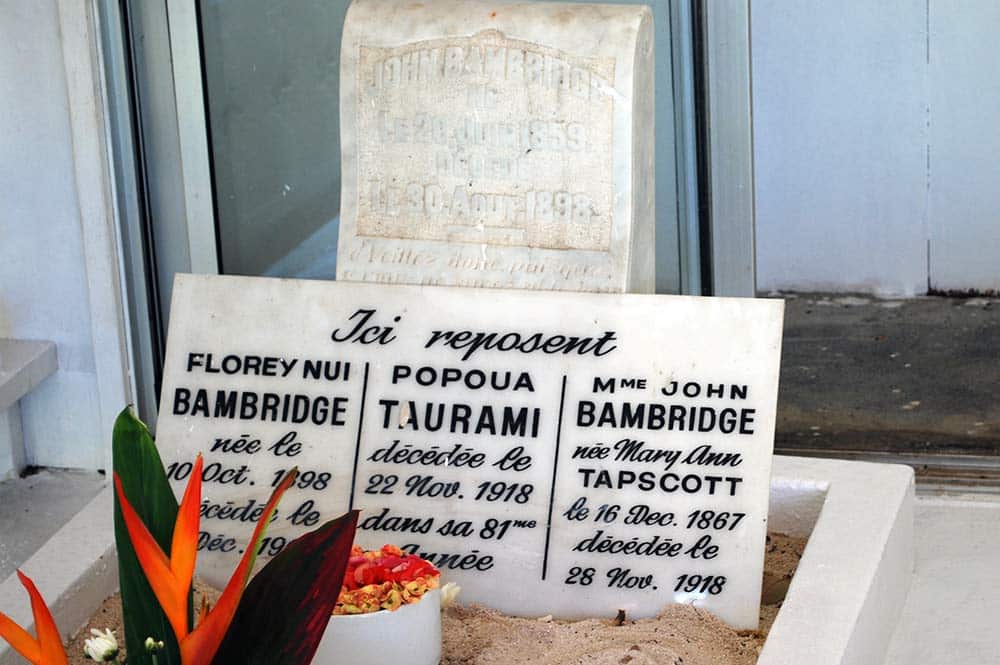 JOHN BAMBRIDGE
NÉ
LE 20 JUIN 1859
DÉCÉDÉ
LE 30 AOUT 1898
Veillez donc puisque
Ici reposent
FLOREY NUI
BAMBRIDGE
née le
10 Oct. 1898
décédée le
Déc. 19
POPOUA
TAURAMI
décédée le
22 Nov. 1918
dans sa 81me
Année
MME JOHN
BAMBRIDGE
née Mary Ann
TAPSCOTT
le 16 Dec. 1867
décédée le
28 Nov. 1918